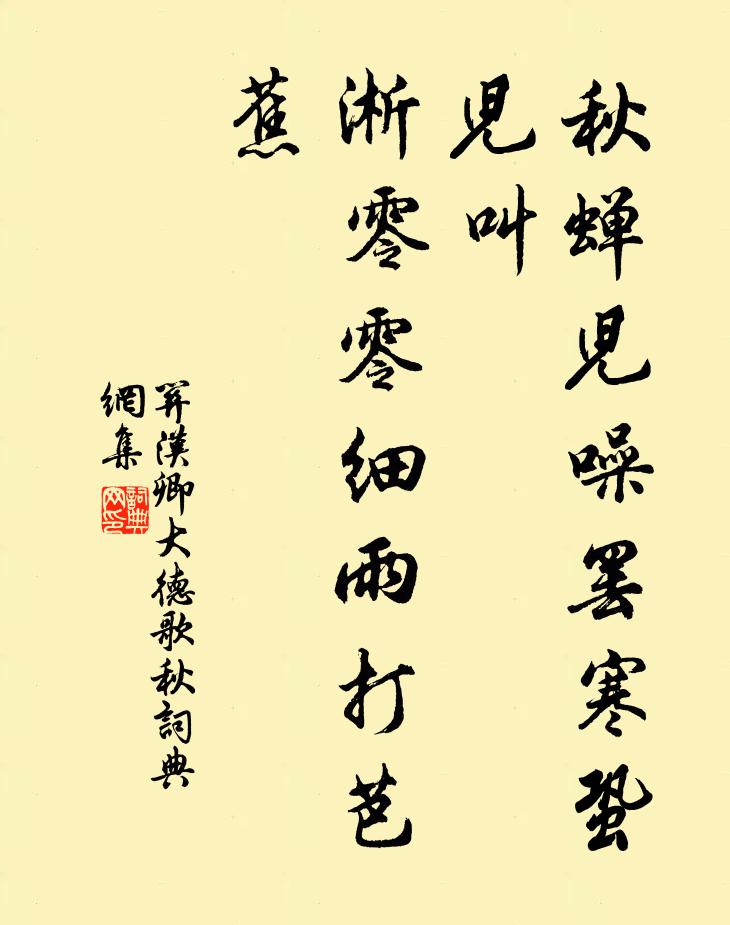 秋蝉児噪罢寒蛩
児叫
淅零零细雨打芭
蕉
関漢卿大德歌秋詞典
網集
詞典网印